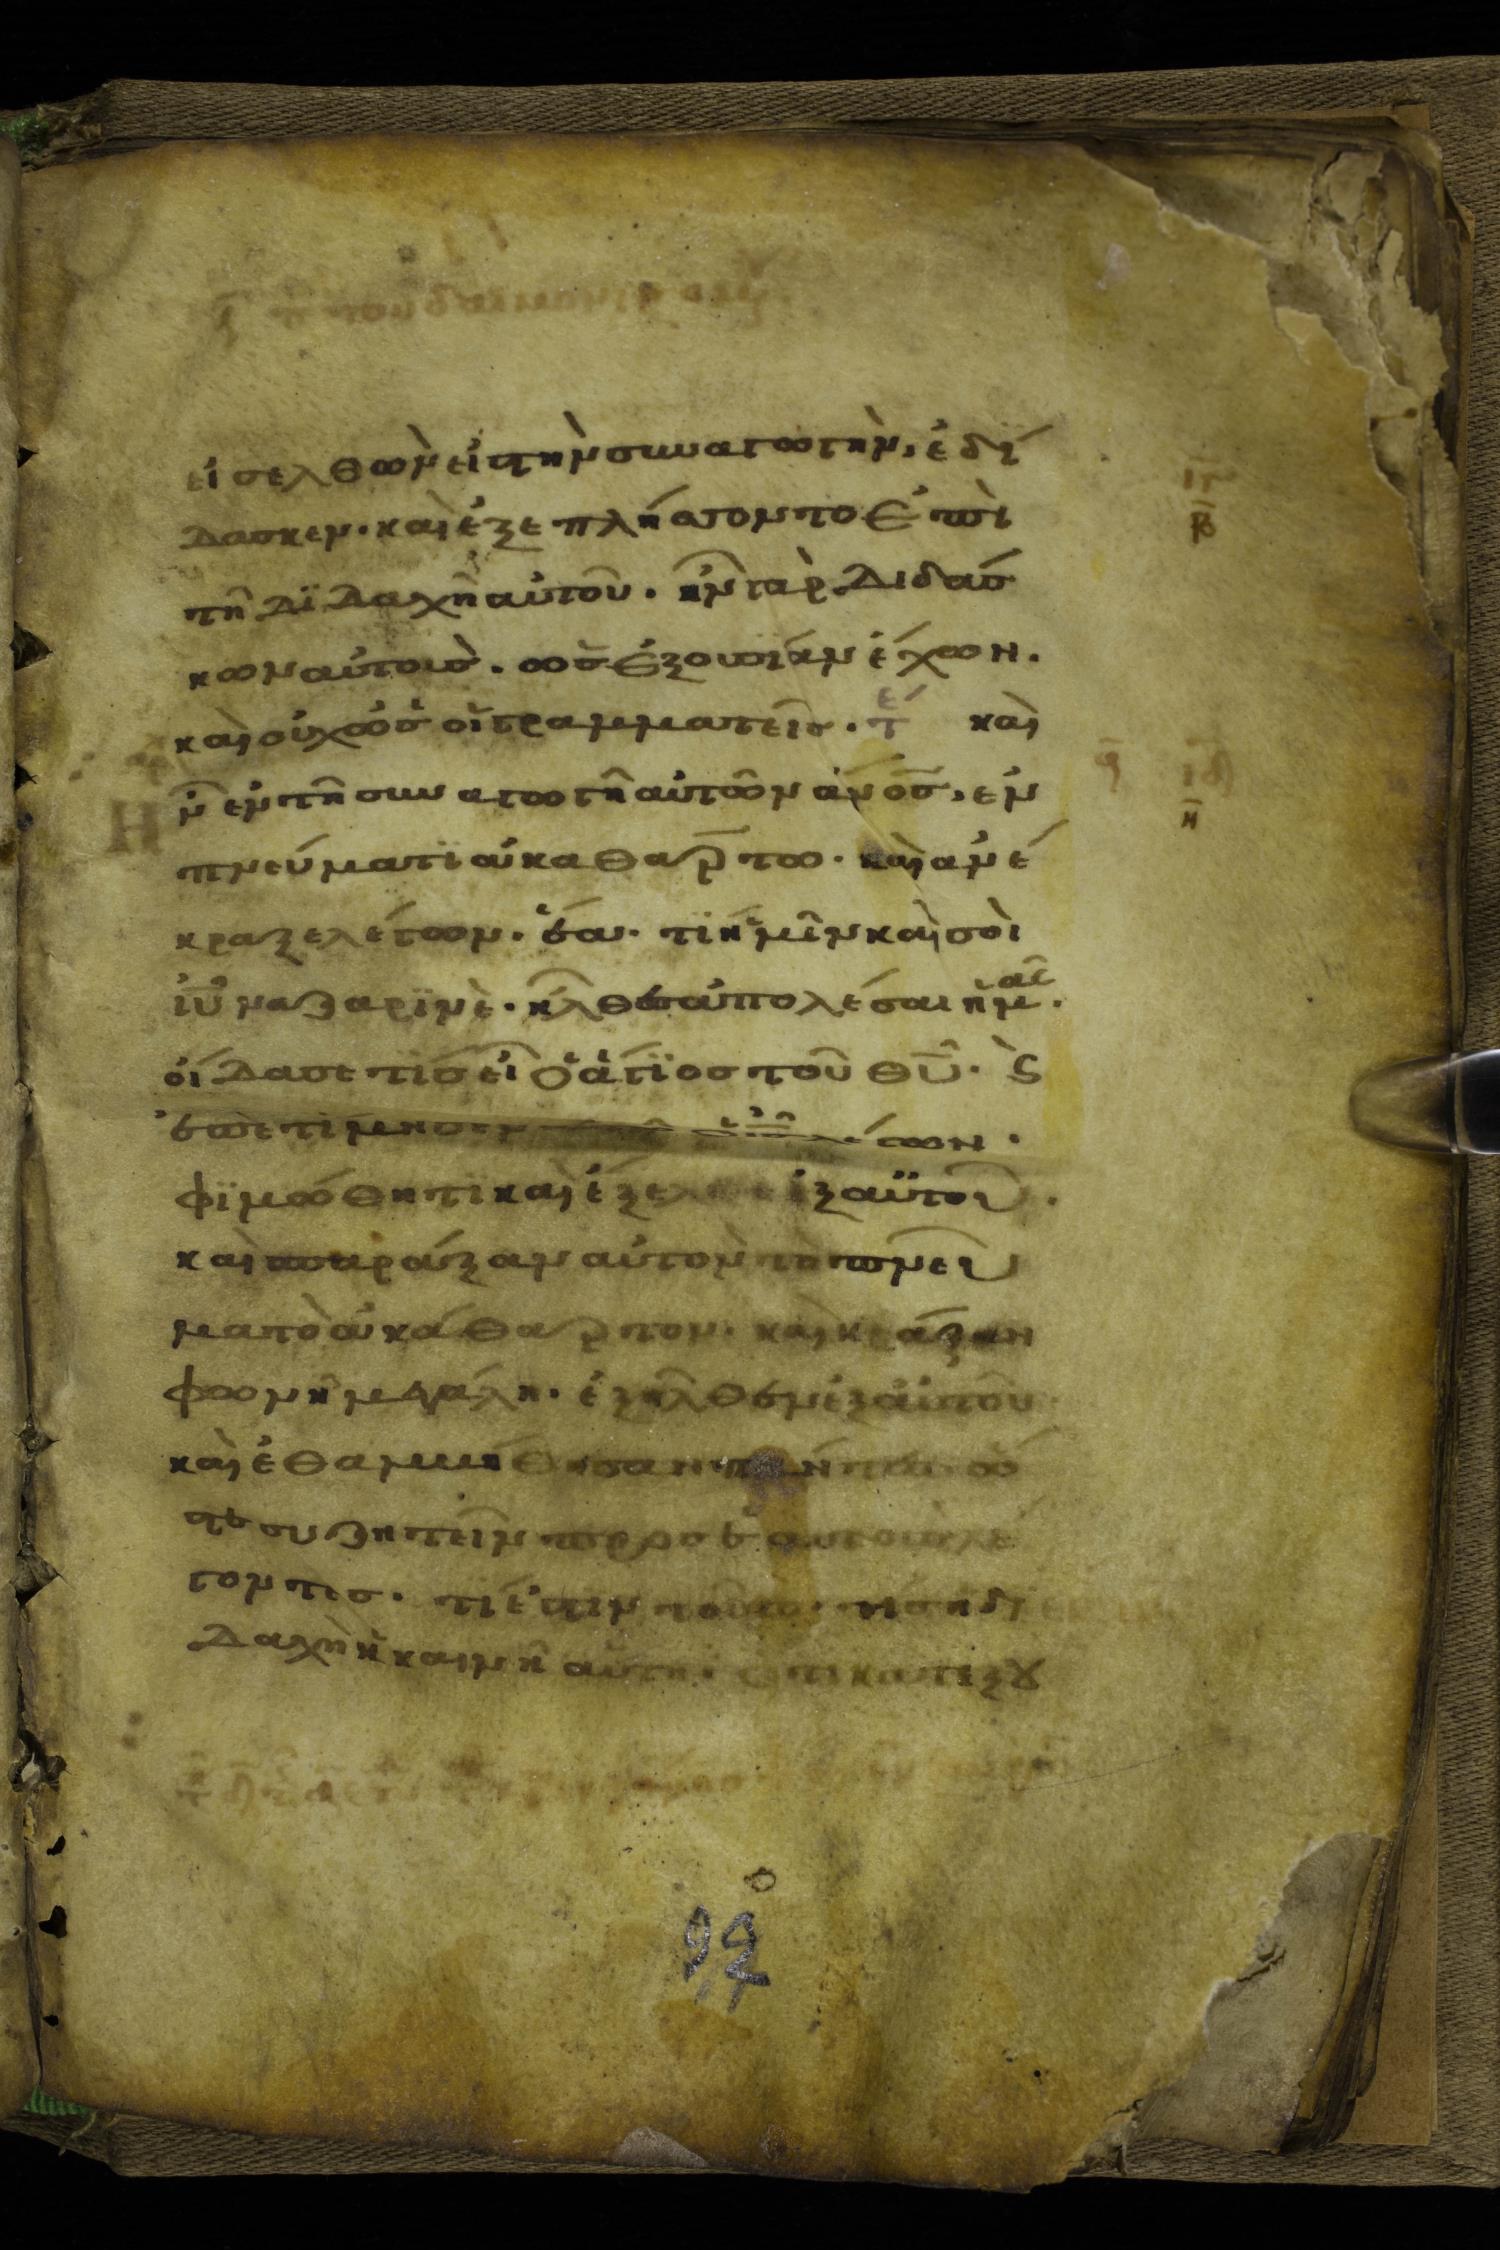 εἰσελθὼν εἰς τὴν συναγωγὴν, ἐδί
δασκεν. καὶ ἐξεπλήσσοντο ἐπὶ
τῆ διδαχῆ αὐτοῦ. ἦν γὰρ διδάσ
κων αὐτοὺς. ὡς ἐξουσίαν ἔχων.
καὶ οὐχ ὡς οἱ γραμματεῖς. τε καὶ
ἦν ἐν τῆ συναγωγῆ αὐτῶν ἄνος, ἐν
πνεύματι ἀκαθάρτω. καὶ ἀνέ
κραξε λέγων. ἔα. τί ἡμῖν καὶ σοὶ
ἰῦ ναζαρινὲ. ἦλθες ἀπολέσαι ἡμᾶς.
οἶδά σε τίς εἶ ὁ ἅγιος τοῦ θῦ. ϛ
ἐπετίμησεν λέγων.
φιμώθητι καὶ ἔξελθε ἐξ αὐτοῦ.
καὶ σπαράξαν αὐτὸν τὸ πνεῦ
μα τὸ ἀκάθαρτον. καὶ κράξαν
φωνῆ μεγάλη. ἐξῆλθεν ἐξ αὐτοῦ
καὶ ἐθαμβήθησαν πάντες. ὥ
στε συζητεῖν πρὸς ἑαυτοὺς λέ
γοντες. τί ἐστιν τοῦτο. τίς ἡ δι
δαχὴ ἡ καινὴ αὕτη. ὅτι κατεξȣ
92